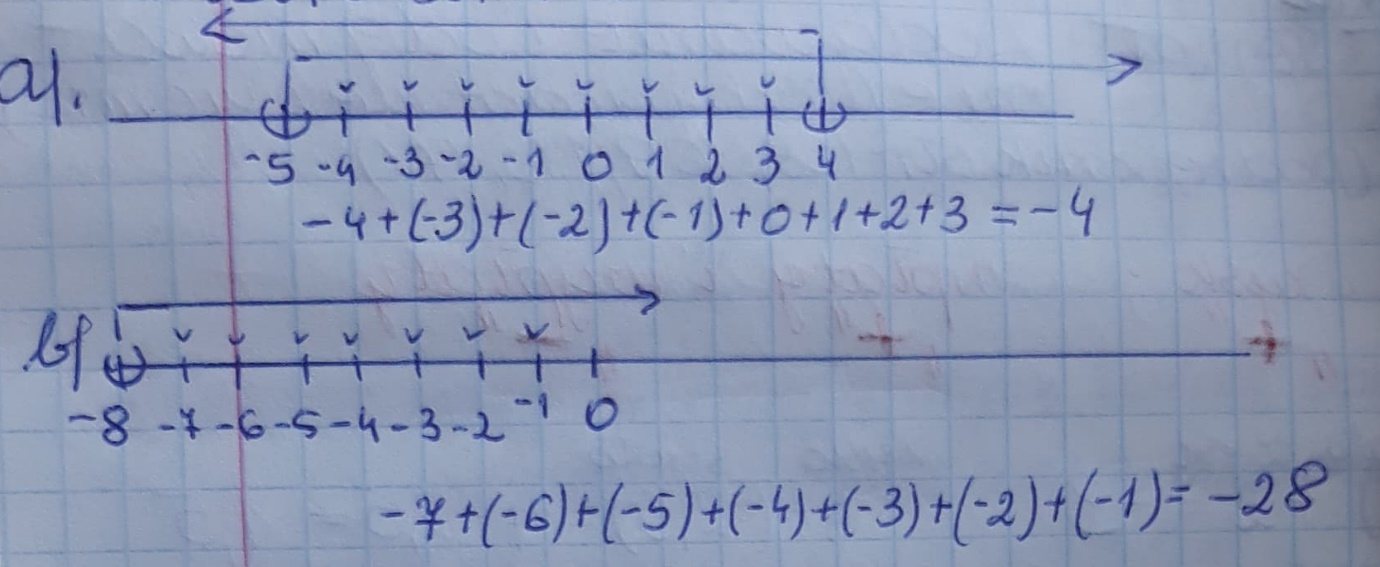 a).
-5 -4 -3 -2 -1 0 1 2 3 4
-4+(-3)+(-2)+(-1)+0+1+2+3=-4
b)
-8 -7 -6 -5 -4 -3 -2 -1 0
-7+(-6)+(-5)+(-4)+(-3)+(-2)+(-1)=-28